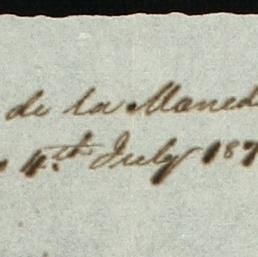 de la Maned
4th July 187